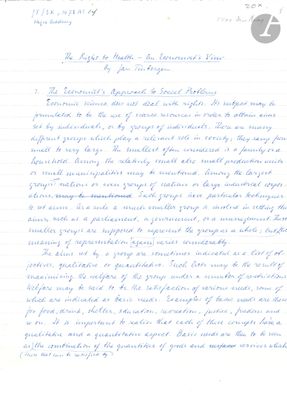 20x
The Right to Health - An Economist's View
by Jan Tinbergen
1. The Economist's Approach to Social Problems
Economic science does not deal with rights. Its subject may be
formulated to be the use of scarce resources in order to attain aims
set by individuals, or by groups of individuals. There are many
different groups which play a relevant role in society; they vary from
small to very large. The smallest often considered is a family or a
household. Among the relatively small also small production units
or small municipalities may be mentioned. Among the largest
groups nations or even groups of nations or large industrial corpo-
rations. Such groups have particular techniques
to set aims. As a rule a much smaller group is involved in setting the
aims such as a parliament, a government, or a management. These
smaller groups are supposed to represent the group as a whole; but the
meaning of representation again varies considerably.
The aims set by a group are sometimes indicated as a list of ob-
jectives, qualitative or quantitative. Such lists may be the result of
maximizing the welfare of the group under a number of restrictions.
Welfare may be said to be the satisfaction of various needs, some of
which are indicated as basic needs. Examples of basic needs are those
for food, drink, shelter, education, recreation, justice, freedom and
so on. It is important to realize that each of these concepts has a
qualitative and a quantitative aspect. Basic needs are then to be seen
as the combination of the quantities of goods and services which